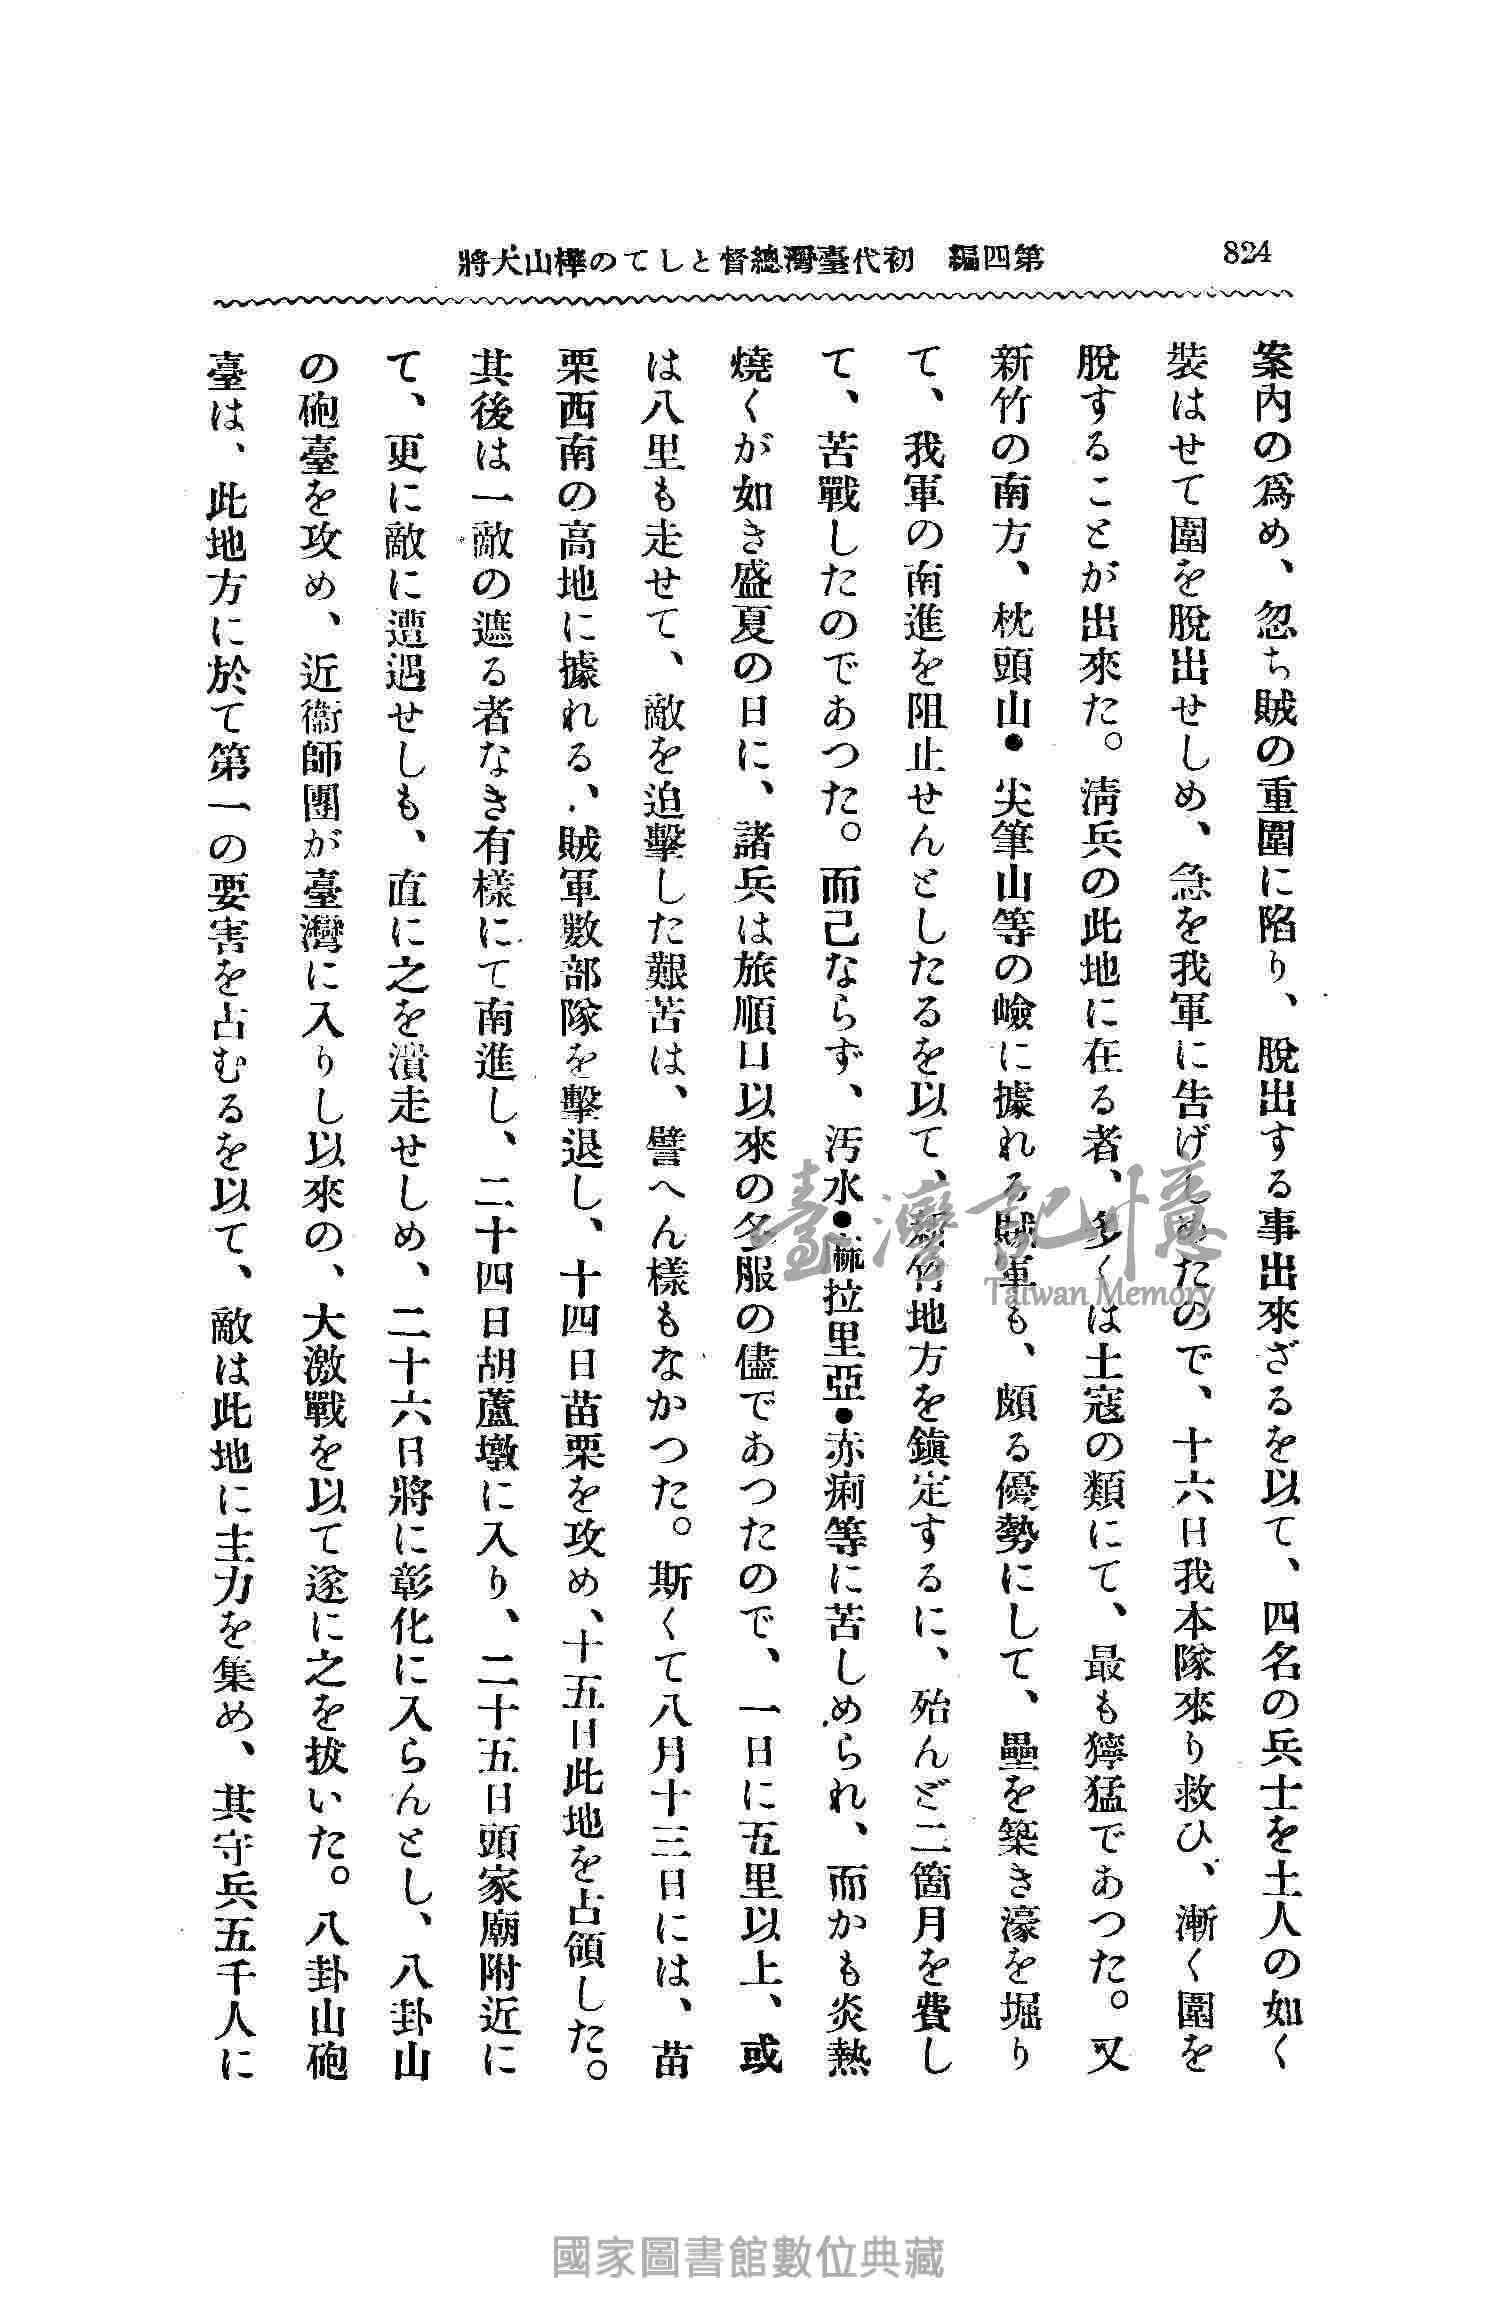 824
第四編　初代臺灣總督としての樺山大將
案內の爲め、忽ち賊の重圍に陷り、脫出する事出來ざるを以て、四名の兵士を土人の如く
裝はせて圍を脫出せしめ、急を我軍に告げしめたので、十六日我本隊來り救ひ、漸く圍を
脫することが出來た。淸兵の此地に在る者、多くは土寇の類にて、最も獰猛であつた。又
新竹の南方、枕頭山●尖筆山等の嶮に據れる賊軍も、頗る優勢にして、壘を築き濠を堀り
て、我軍の南進を阻止せんとしたるを以て、新竹地方を鎭定するに、殆んど二箇月を費し
て、苦戰したのであつた。而己ならず、汚水●痲拉里亞●赤痢等に苦しめられ、而かも炎熱
燒くが如き盛夏の日に、諸兵は旅順口以來の冬服の儘であつたので、一日に五里以上、或
は八里も走せて、敵を追擊した艱苦は、譬へん樣もなかつた。斯くて八月十三日には、苗
栗西南の高地に據れる、賊軍數部隊を擊退し、十四日苗栗を攻め、十五日此地を占領した。
其後は一敵の遮る者なき有樣にて南進し、二十四日胡蘆墩に入り、二十五日頭家廟附近に
て、更に敵に遭遇せしも、直に之を潰走せしめ、二十六日將に彰化に入らんとし、八卦山
の砲臺を攻め、近衞師團が臺灣に入りし以來の、大激戰を以て遂に之を拔いた。八卦山砲
臺は、此地方に於て第一の要害を占むるを以て、敵は此地に主力を集め、其守兵五千人に
臺灣記憶
Taiwan Memory
國家圖書館數位典藏